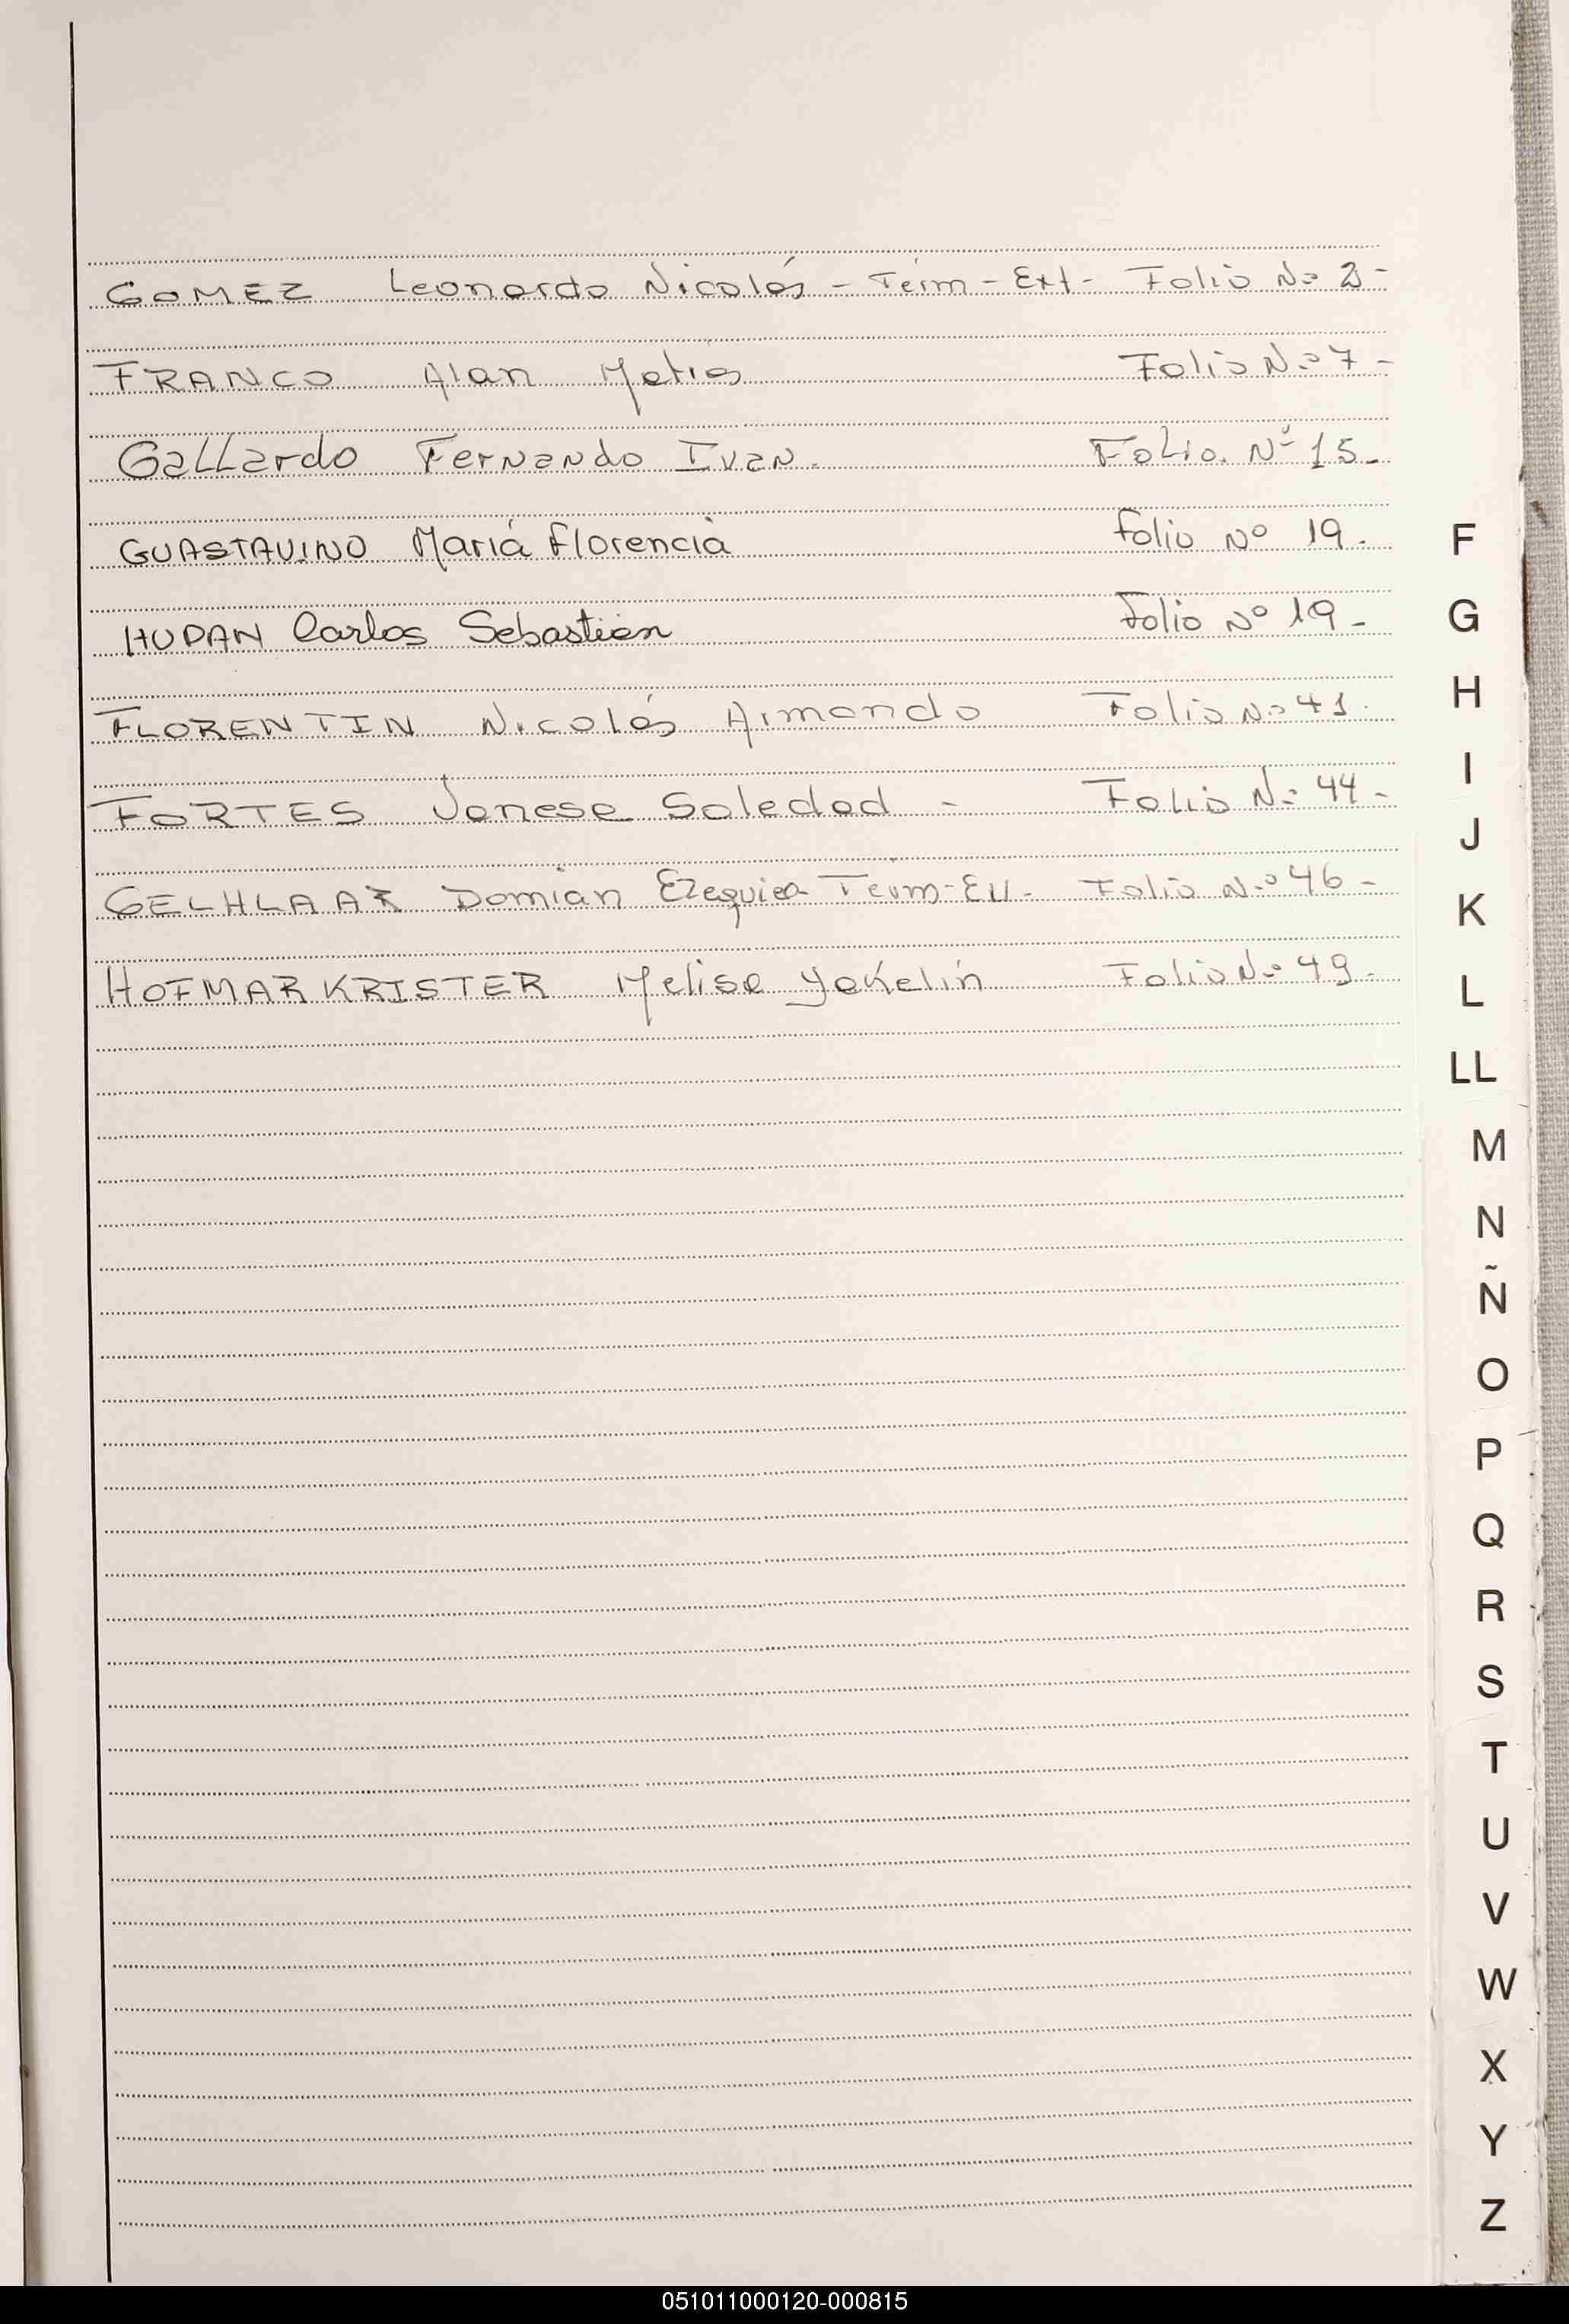 GOMEZ Leonardo Nicolás - Térm - Ext - Folio Nº 2 -
FRANCO Alan Matias Folio Nº 7 -
GaLLardo FerNaNdo IvaN. FoLio. Nº 15 -
GUASTAVINO María Florencia folio Nº 19 -
HUPAN Carlos Sebastián folio Nº 19 -
FLORENTIN Nicolás Armando Folio Nº 41.
FORTES Janese Soledad - Folio Nº 44 -
GELHLAAR Domian Ezequiel Term - Folio Nº 46 -
HOFMARKRISTER Melisa Yakelin Folio Nº 49 -
F
G
H
I
J
K
L
LL
M
N
Ñ
O
P
Q
R
S
T
U
V
W
X
Y
Z
051011000120-000815